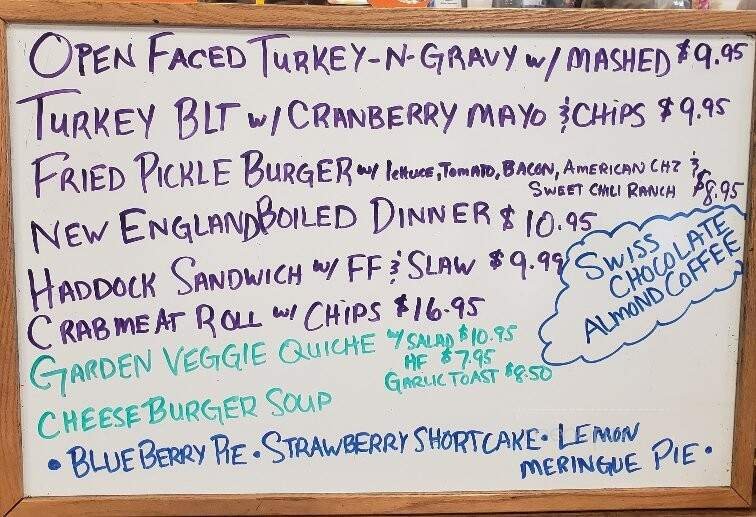 OPEN FACED TURKEY-N-GRAVY w/ MASHED $9.95
TURKEY BLT w/ CRANBERRY MAYO & CHIPS $9.95
FRIED PICKLE BURGER w/ LETTUCE, TOMATO, BACON, AMERICAN CHZ &
SWEET CHILI RANCH $8.95
NEW ENGLAND BOILED DINNER $10.95
HADDOCK SANDWICH w/ FF & SLAW $9.99
CRABMEAT ROLL w/ CHIPS $16.95
SWISS
CHOCOLATE
ALMOND COFFEE
GARDEN VEGGIE QUICHE w/ SALAD $10.95
HF $7.95
GARLIC TOAST $8.50
CHEESEBURGER SOUP
• BLUEBERRY PIE • STRAWBERRY SHORTCAKE • LEMON
MERINGUE PIE •